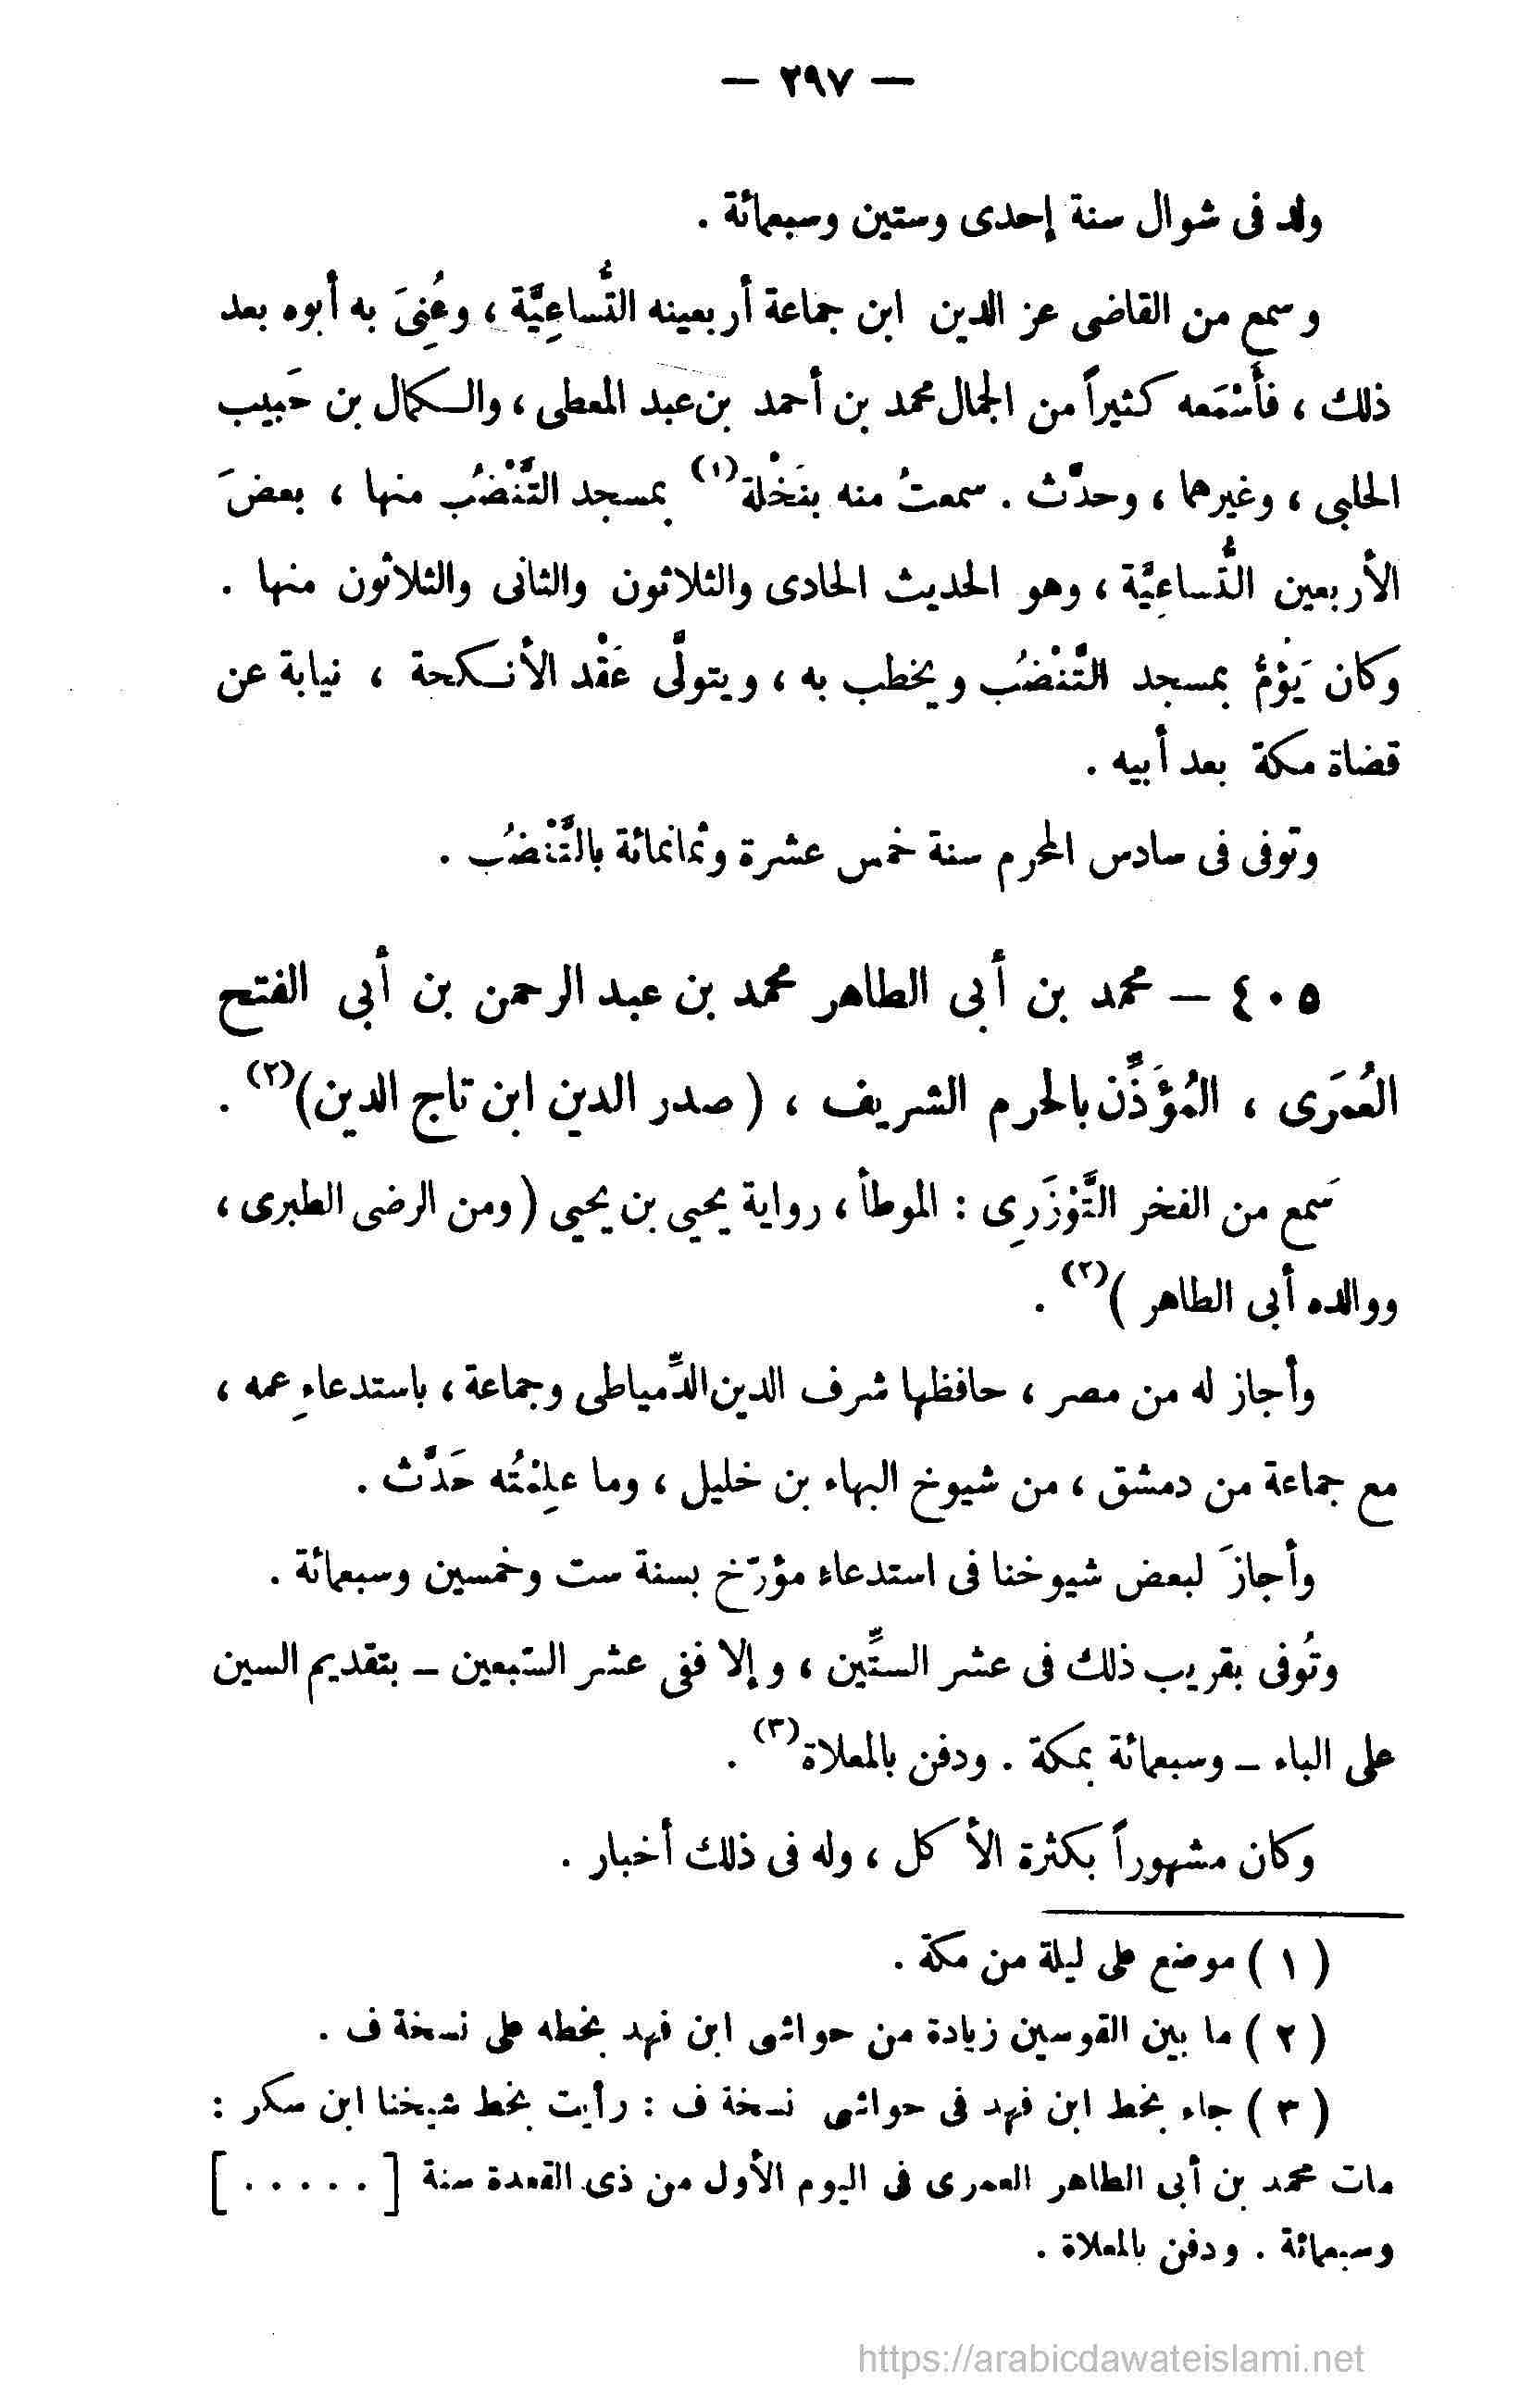 — ٢٩٧ —
ولد فى شوال سنة إحدى وستين وسبعمائة .
وسمع من القاضى عز الدين ابن جماعة أربعينه التُّساعِيَّة ، وعُنِىَ به أبوه بعد
ذلك ، فأَسْمَعه كثيراً من الجمال محمد بن أحمد بن عبد المعطى ، والكمال بن حَبيب
الحلبى ، وغيرهما ، وحدَّث . سمعتُ منه بنَخْلة(١) بمسجد التَّنْضُب منها ، بعضَ
الأربعين التُّساعِيَّة ، وهو الحديث الحادى والثلاثون والثانى والثلاثون منها .
وكان يَؤُمُّ بمسجد التَّنْضُب ويخطب به ، ويتولَّى عَقْد الأنكحة ، نيابة عن
قضاة مكة بعد أبيه .
وتوفى فى سادس المحرم سنة خمس عشرة وثمانمائة بالتَّنْضُب .
٤٠٥ — محمد بن أبى الطاهر محمد بن عبد الرحمن بن أبى الفتح
العُمَرى ، المُؤَذِّن بالحرم الشريف ، ( صدر الدين ابن تاج الدين )(٢) .
سَمع من الفخر التَّوْزَرِى : الموطأ ، رواية يحيى بن يحيى ( ومن الرضى الطبرى ،
ووالده أبى الطاهر )(٢) .
وأجاز له من مصر ، حافظها شرف الدين الدِّمياطى وجماعة ، باستدعاءِ عمه ،
مع جماعة من دمشق ، من شيوخ البهاء بن خليل ، وما علِمْتُه حَدَّث .
وأجازَ لبعض شيوخنا فى استدعاء مؤرّخ بسنة ست وخمسين وسبعمائة .
وتُوفى بقريب ذلك فى عشر الستِّين ، وإلا ففى عشر السّبعين – بتقديم السين
على الباء – وسبعمائة بمكة . ودفن بالمعلاة(٣) .
وكان مشهوراً بكثرة الأكل ، وله فى ذلك أخبار .
( ١ ) موضع على ليلة من مكة .
( ٢ ) ما بين القوسين زيادة من حواشى ابن فهد بخطه على نسخة ف .
( ٣ ) جاء بخط ابن فهد فى حواشى نسخة ف : رأيت بخط شيخنا ابن سكر :
مات محمد بن أبى الطاهر العمرى فى اليوم الأول من ذى القعدة سنة [ ..... ]
وسبعمائة . ودفن بالمعلاة .
https://arabicdawateislami.net